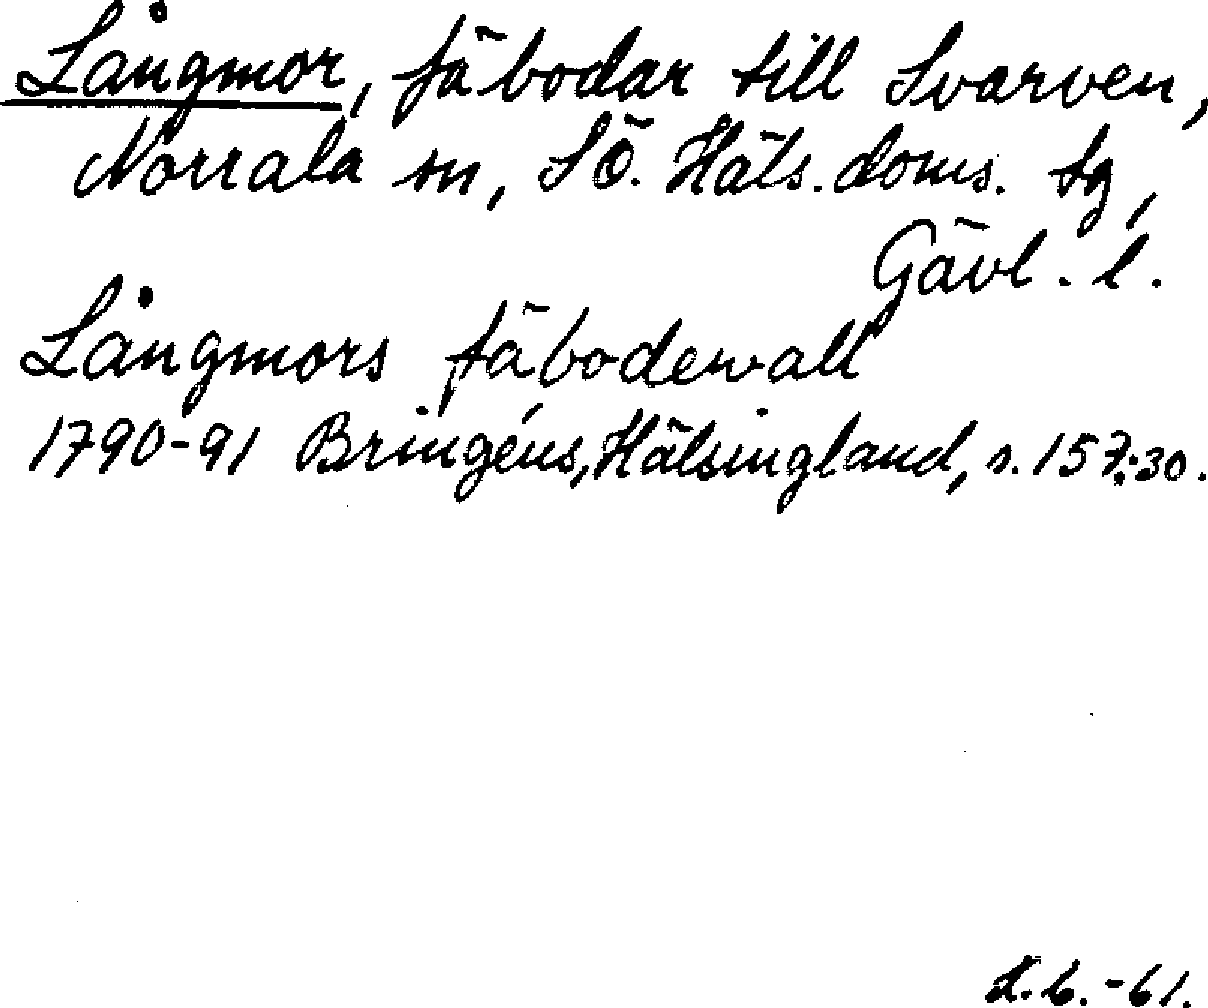 Långmor, fäbodar till Svarven,
Norrala sn, SÖ. Häls. doms. tg,
Gävl. l.
Långmors fäbodewall
1790-91 Bringéus, Hälsingland, s. 157:30.
L.b.-61.